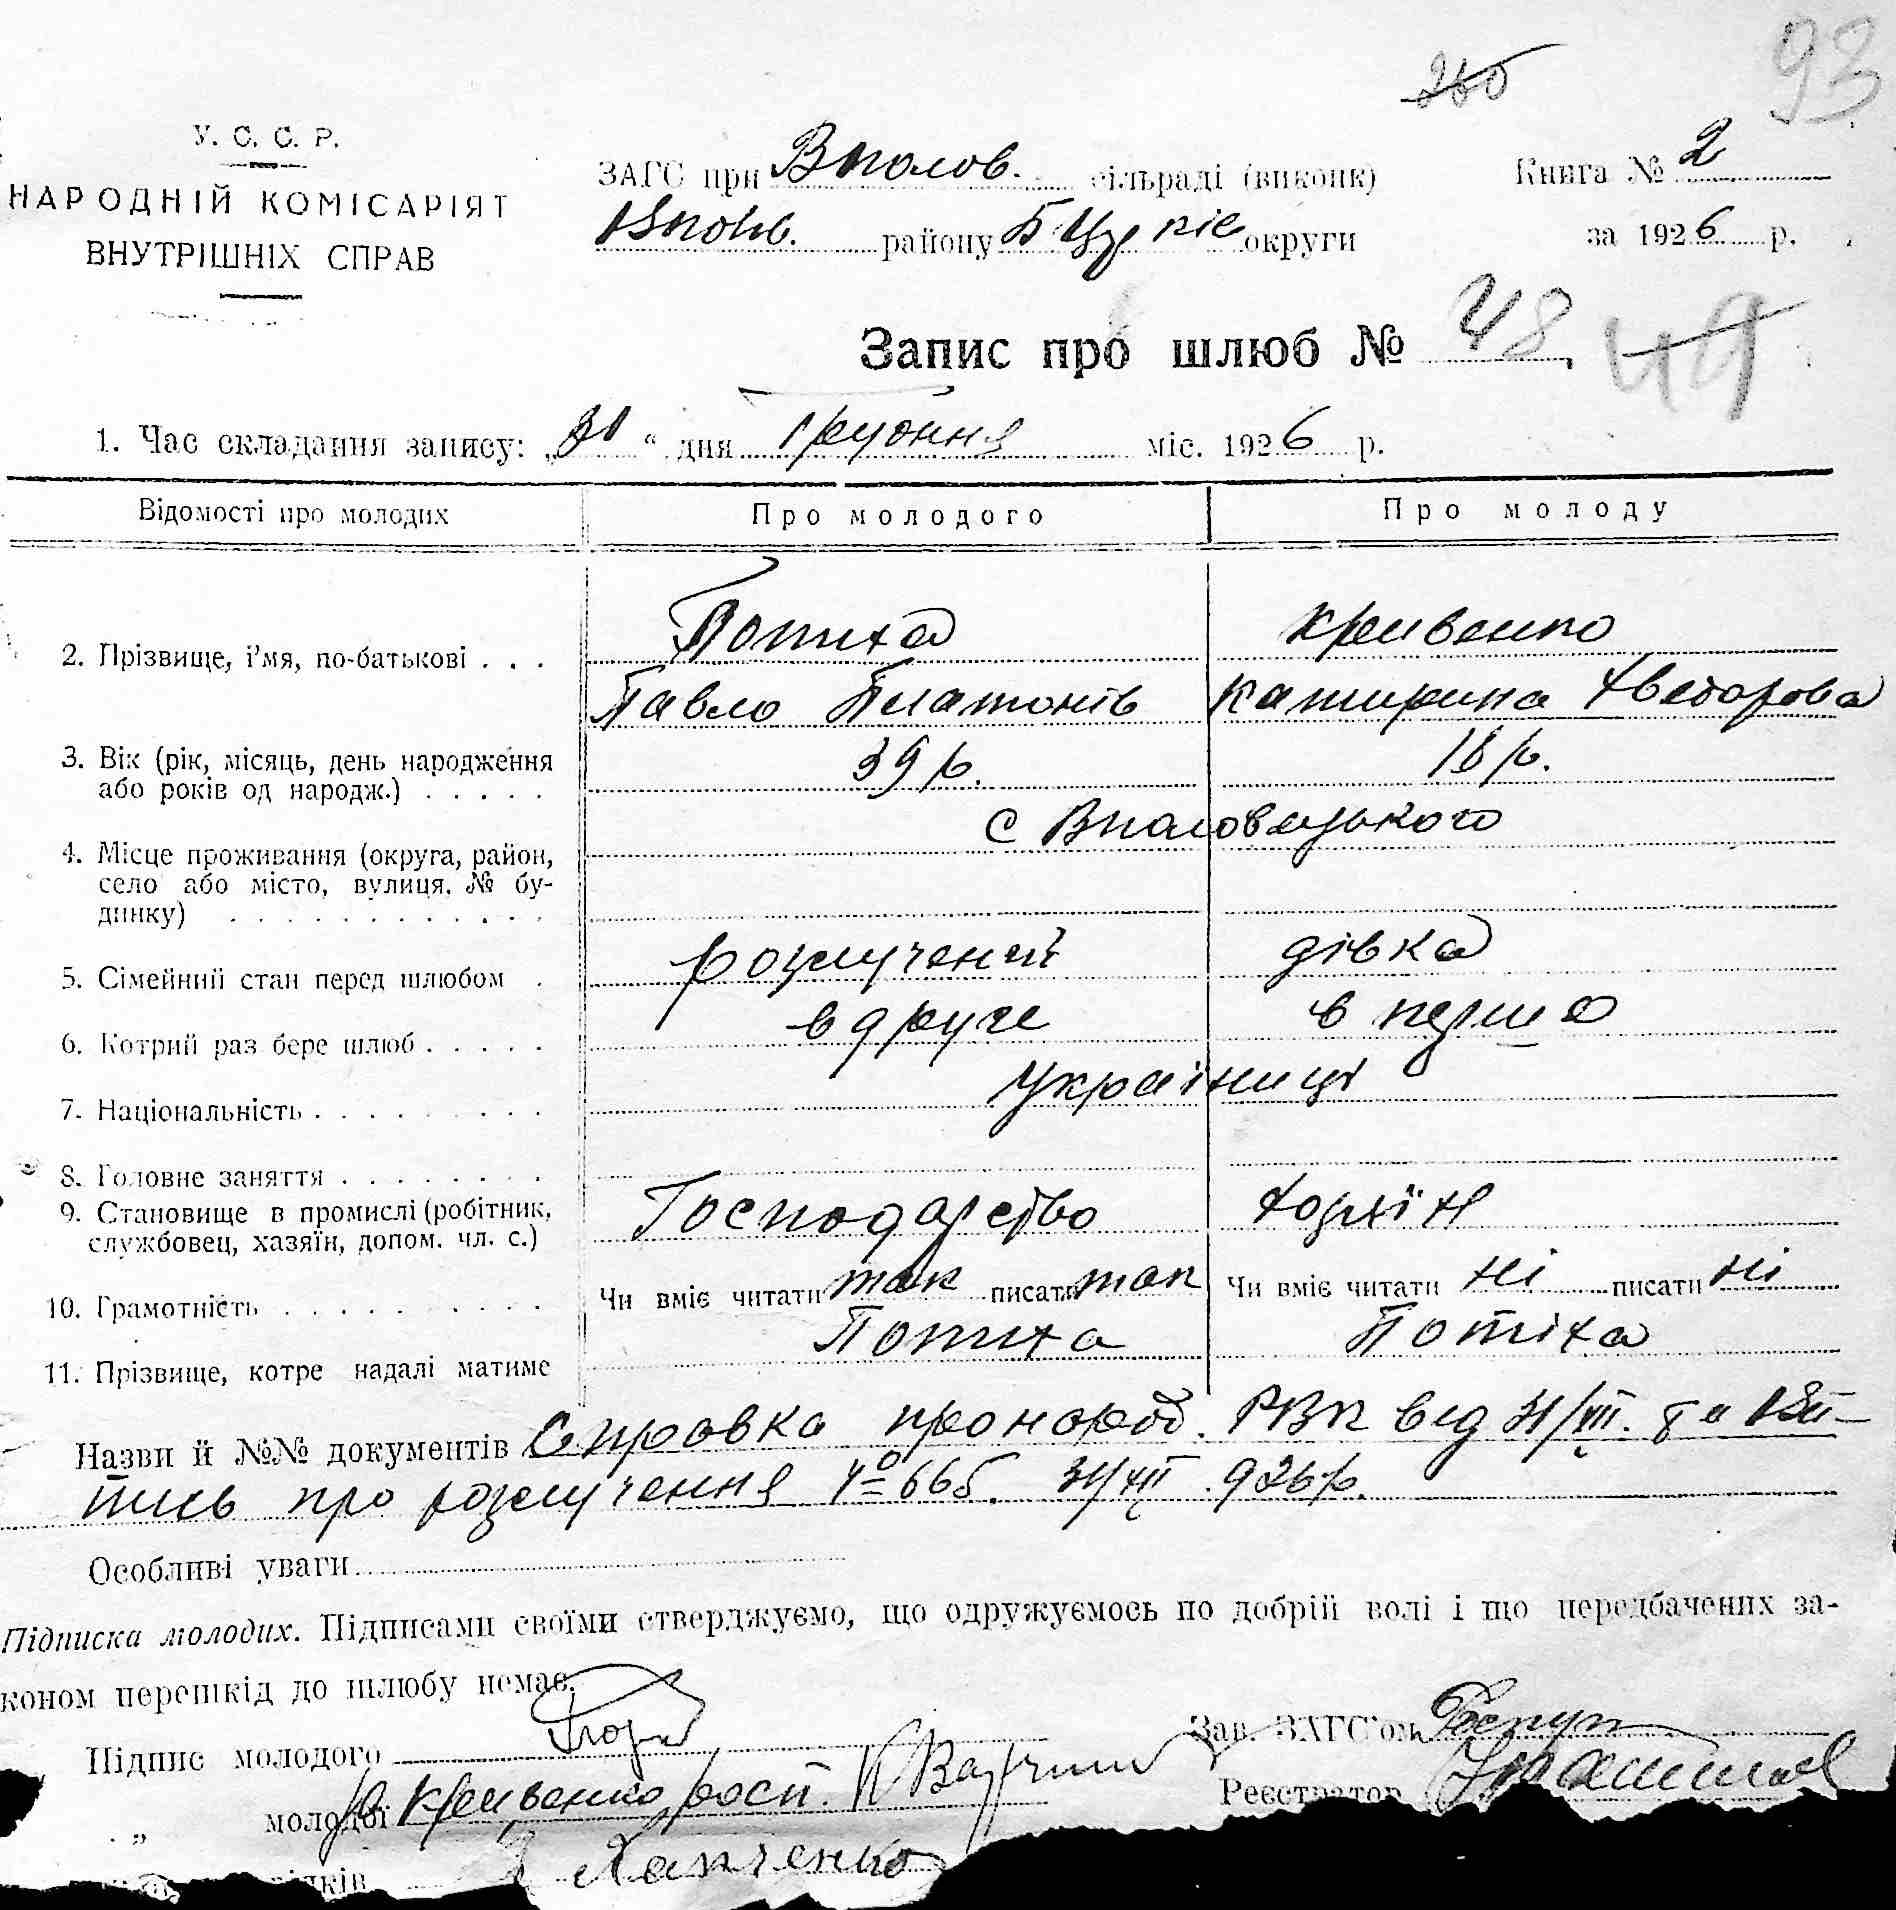 93
260
У. С. С. Р.
НАРОДНІЙ КОМІСАРІЯТ
ВНУТРІШНІХ СПРАВ
ЗАГС при Вполов. сільраді (виконк)
Вполов. району Б Церків округи
Книга № 2
за 1926 р.
Запис про шлюб № 48 49
1. Час складання запису: „31“ дня грудння міс. 1926 р.
Відомості про молодих Про молодого Про молоду
2. Прізвище, і'мя, по-батькові . . . Потиха Кривенко
Павло Платонів Катирина Хведорова
3. Вік (рік, місяць, день народження 39 р. 18 р.
або років од народж.) . . . . .
с Вполовецького
4. Місце проживання (округа, район,
село або місто, вулиця, № бу-
динку) . . . . . . . . . . . .
5. Сімейний стан перед шлюбом . розлучений дівка
6. Котрий раз бере шлюб . . . . . вдруге в перше
7. Національність . . . . . . . . . Українці
8. Головне заняття . . . . . . . .
9. Становище в промислі (робітник, Господарство хозяїн
службовец, хазяїн, допом. чл. с.)
10. Грамотність . . . . . . . . . . Чи вміє читати так писати так Чи вміє читати ні писати ні
11. Прізвище, котре надалі матиме Потиха Потіха
Назви й №№ документів Справка про народ. РВК від 31/XII.
пись про розлучення № 665. 31/XII 926 р.
Особливі уваги
Підписка молодих. Підписами своїми стверджуємо, що одружуємось по добрій волі і що передбачених за-
коном перешкід до шлюбу немає.
Підпис молодого
Зав. ЗАГС'ом
„ молодої Кривенко росп.
Реєстратор
Харченко